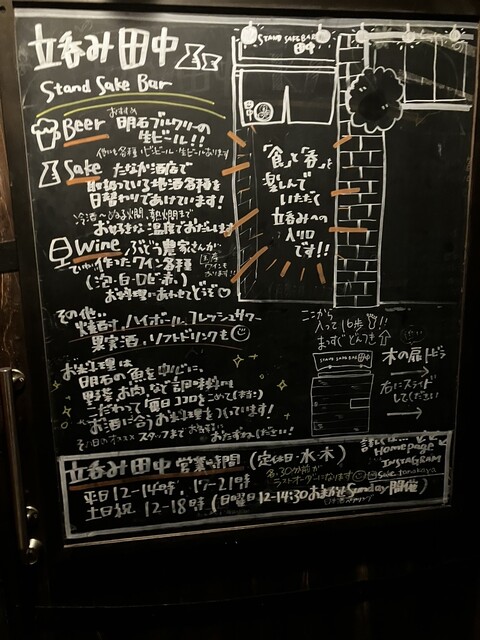 立呑み田中
Stand Sake Bar
Beer おすすめ 明石ブルワリーの
生ビール!!
他にも各種 ビンビール・生ビールあります
Sake たなか酒店で
取扱っている地酒各種を
日替わりであけています!
冷酒〜ぬる燗、熱燗まで
お好きな温度でお出しします
Wine ぶどう農家さんが
ていねいに作ったワイン各種
(泡・白・ロゼ・赤)
お料理にあわせてどうぞ♡
その他、
焼酎、ハイボール、フレッシュサワー
果実酒、ソフトドリンクも
お料理は
明石の魚を中心に、
野菜、お肉など調味料にも
こだわって毎日ココロをこめて
お酒に合うお料理をつくっています!
その日のオススメ スタッフまで お気軽に
おたずねください!
STAND SAKE BAR
田中
田中
「食」と「呑」を
楽しんで
いただく
立呑みへの
入り口
です!!
ここから
入って16歩!!
まっすぐどんつき
STAND SAKE BAR 田中
木の扉トビラ
右にスライド
してください
立呑み田中 営業時間 (定休日・水・木)
平日12-14時、17-21時
各30分前が
ラストオーダーになります
土日祝 12-18時 (日曜日12-14:30おまかせSunday開催)
詳しくは…
Homepage
INSTAGRAM
sake.tanakaya